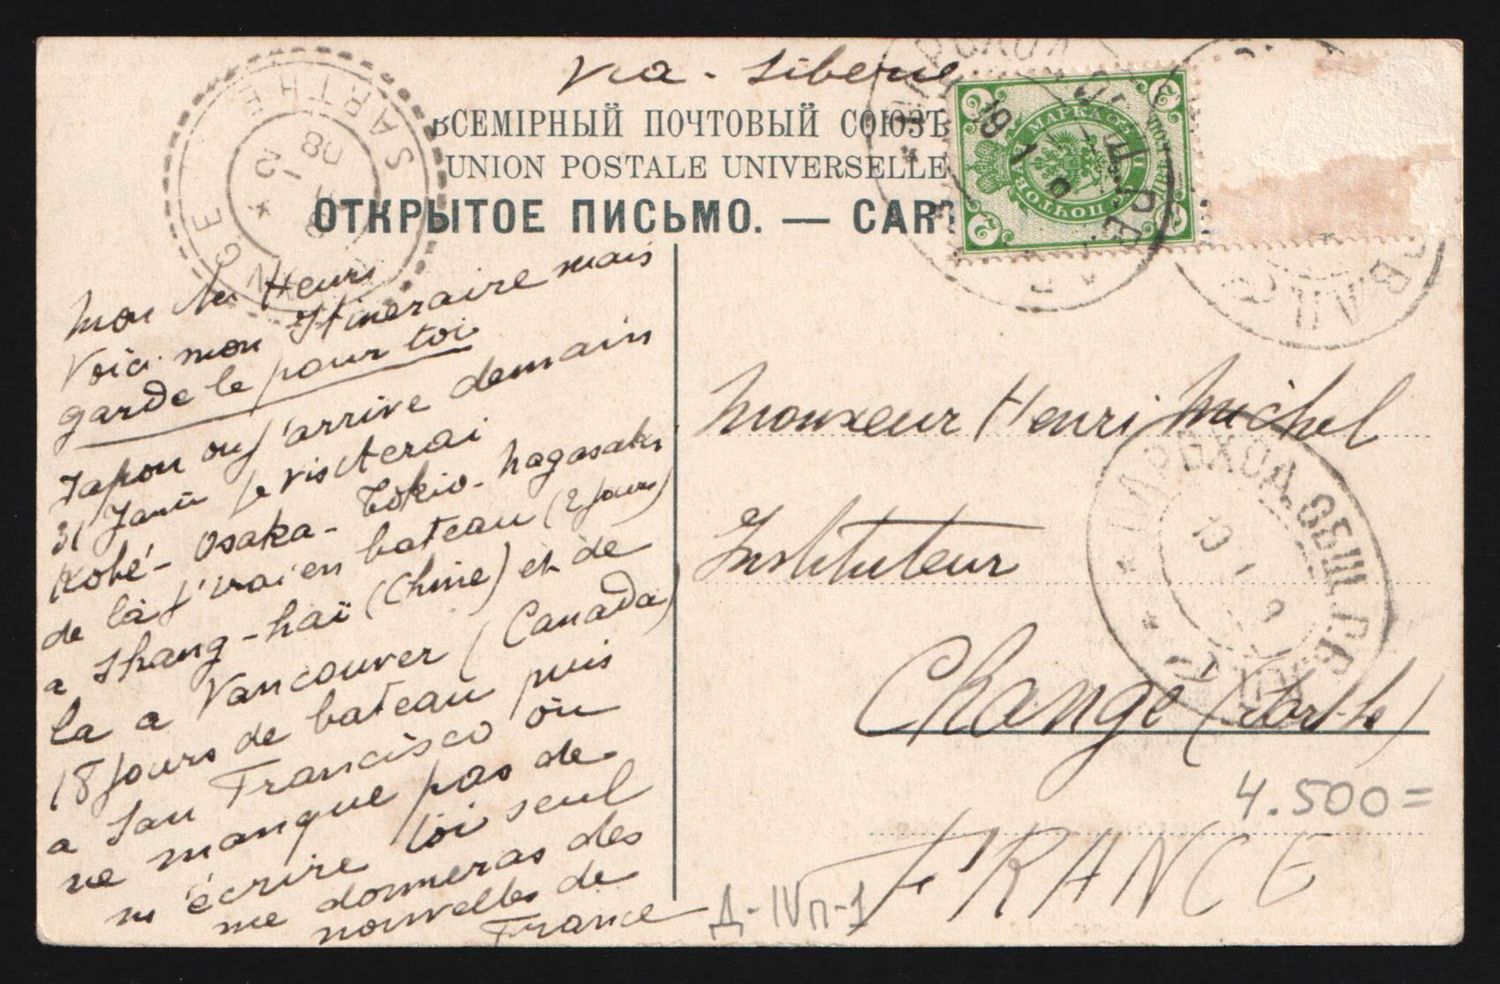 Via - Siberie
ВСЕМІРНЫЙ ПОЧТОВЫЙ СОЮЗЪ
UNION POSTALE UNIVERSELLE
ОТКРЫТОЕ ПИСЬМО. — CART
SARTHE
2
МАРКА
Mon Henri
Voici mon Itineraire mais
garde le pour toi
Japon ou j'arrive demain
31 Janv je visiterai
Kobé - Osaka - Tokio - Nagasaki
de là j'irai en bateau (2 jours)
a Shang-haï (Chine) et de
la a Vancouver (Canada)
18 jours de bateau puis
a San Francisco où
ne manque pas de
m'écrire toi seul
me donneras des
nouvelles de
France
Monsieur Henri Michel
Instituteur
Changé (Sarthe)
FRANCE
ПАРОХОД. ОБЩ.
4.500=
Д-IVп-1